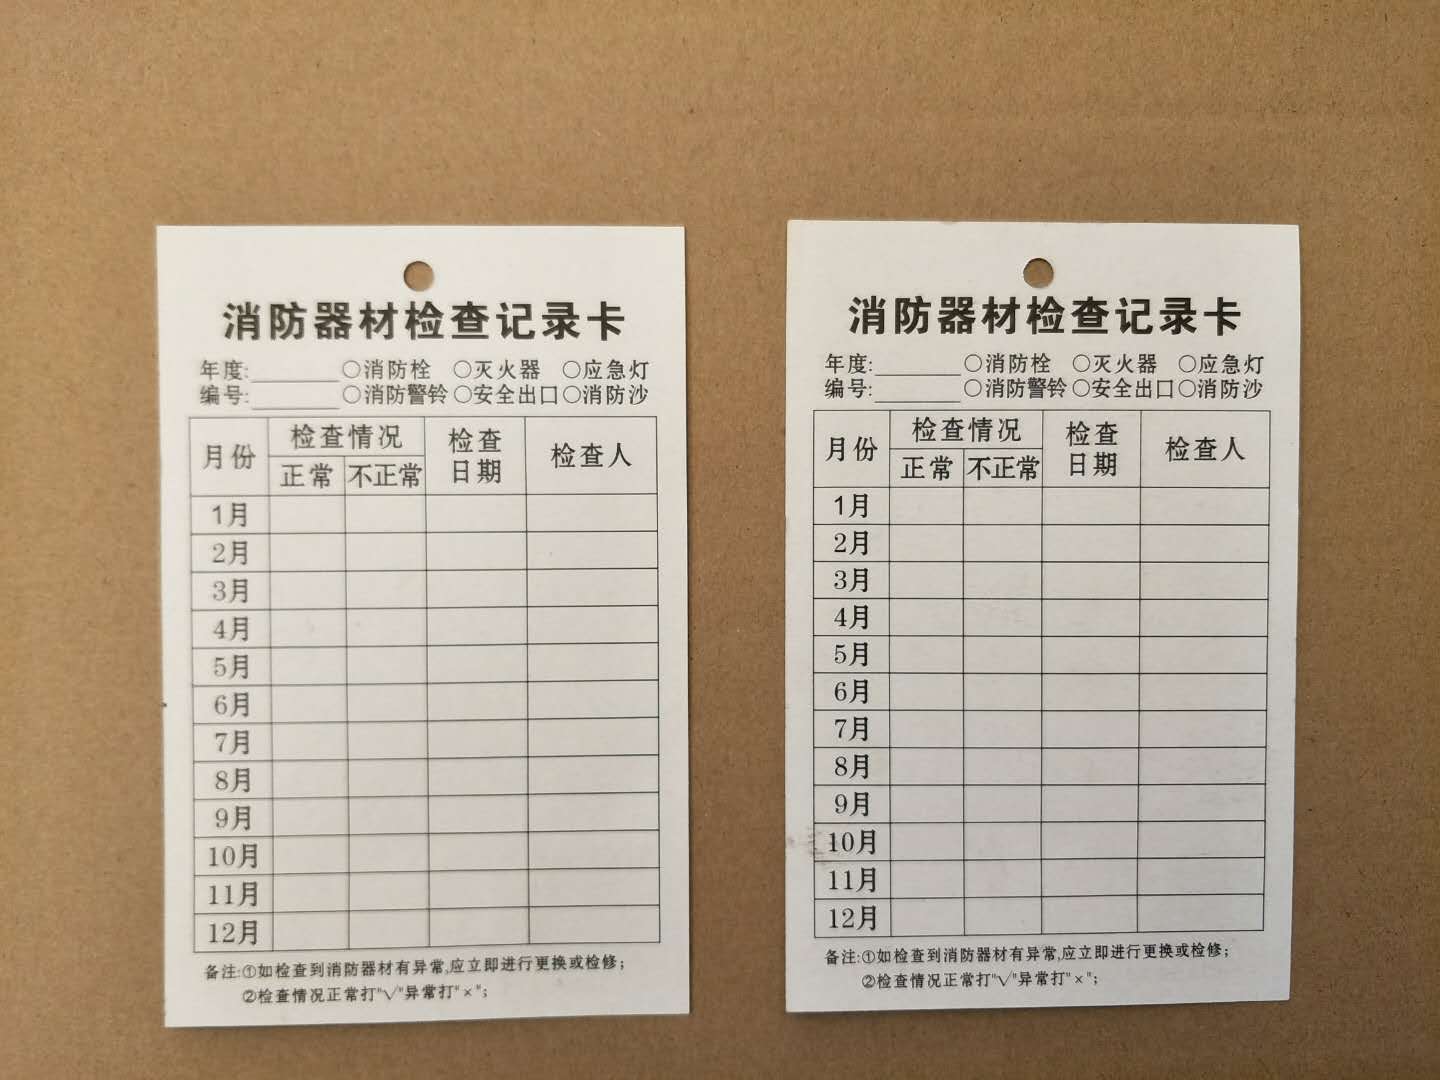 消防器材检查记录卡
年度:________ ○消防栓 ○灭火器 ○应急灯
编号:________ ○消防警铃 ○安全出口 ○消防沙
月份 检查情况 检查日期 检查人
正常 不正常
1月
2月
3月
4月
5月
6月
7月
8月
9月
10月
11月
12月
备注:①如检查到消防器材有异常,应立即进行更换或检修;
②检查情况正常打"√"异常打"×";
消防器材检查记录卡
年度:________ ○消防栓 ○灭火器 ○应急灯
编号:________ ○消防警铃 ○安全出口 ○消防沙
月份 检查情况 检查日期 检查人
正常 不正常
1月
2月
3月
4月
5月
6月
7月
8月
9月
10月
11月
12月
备注:①如检查到消防器材有异常,应立即进行更换或检修;
②检查情况正常打"√"异常打"×";